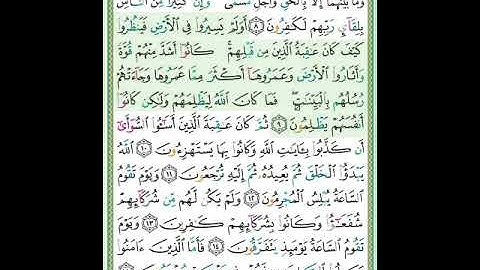 وَمَا بَيْنَهُمَآ إِلَّا بِٱلْحَقِّ وَأَجَلٍ مُّسَمًّى ۗ وَإِنَّ كَثِيرًا مِّنَ ٱلنَّاسِ
بِلِقَآئِ رَبِّهِمْ لَكَٰفِرُونَ ٨ أَوَلَمْ يَسِيرُوا۟ فِى ٱلْأَرْضِ فَيَنظُرُوا۟
كَيْفَ كَانَ عَٰقِبَةُ ٱلَّذِينَ مِن قَبْلِهِمْ ۚ كَانُوٓا۟ أَشَدَّ مِنْهُمْ قُوَّةً
وَأَثَارُوا۟ ٱلْأَرْضَ وَعَمَرُوهَآ أَكْثَرَ مِمَّا عَمَرُوهَا وَجَآءَتْهُمْ
رُسُلُهُم بِٱلْبَيِّنَٰتِ ۖ فَمَا كَانَ ٱللَّهُ لِيَظْلِمَهُمْ وَلَٰكِن كَانُوٓا۟
أَنفُسَهُمْ يَظْلِمُونَ ٩ ثُمَّ كَانَ عَٰقِبَةَ ٱلَّذِينَ أَسَٰٓـُٔوا۟ ٱلسُّوٓأَىٰٓ
أَن كَذَّبُوا۟ بِـَٔايَٰتِ ٱللَّهِ وَكَانُوا۟ بِهَا يَسْتَهْزِءُونَ ١٠ ٱللَّهُ
يَبْدَؤُا۟ ٱلْخَلْقَ ثُمَّ يُعِيدُهُۥ ثُمَّ إِلَيْهِ تُرْجَعُونَ ١١ وَيَوْمَ تَقُومُ
ٱلسَّاعَةُ يُبْلِسُ ٱلْمُجْرِمُونَ ١٢ وَلَمْ يَكُن لَّهُم مِّن شُرَكَآئِهِمْ
شُفَعَٰٓؤُا۟ وَكَانُوا۟ بِشُرَكَآئِهِمْ كَٰفِرِينَ ١٣ وَيَوْمَ
تَقُومُ ٱلسَّاعَةُ يَوْمَئِذٍ يَتَفَرَّقُونَ ١٤ فَأَمَّا ٱلَّذِينَ ءَامَنُوا۟